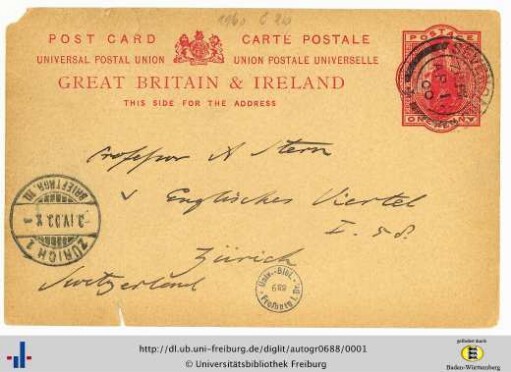 1960 C 26
POST CARD CARTE POSTALE
UNIVERSAL POSTAL UNION UNION POSTALE UNIVERSELLE
GREAT BRITAIN & IRELAND
THIS SIDE FOR THE ADDRESS
POSTAGE
ONE PENNY
SEVENOAKS
AP 1
00
Professor A Stern
Englisches Viertel
I. 58.
Zürich
Switzerland
ZÜRICH 1
BRIEFTRGR. III
Univ.-Bibl.
Freiburg i. Br.
http://dl.ub.uni-freiburg.de/diglit/autogr0688/0001
© Universitätsbibliothek Freiburg
gefördert durch
Baden-Württemberg